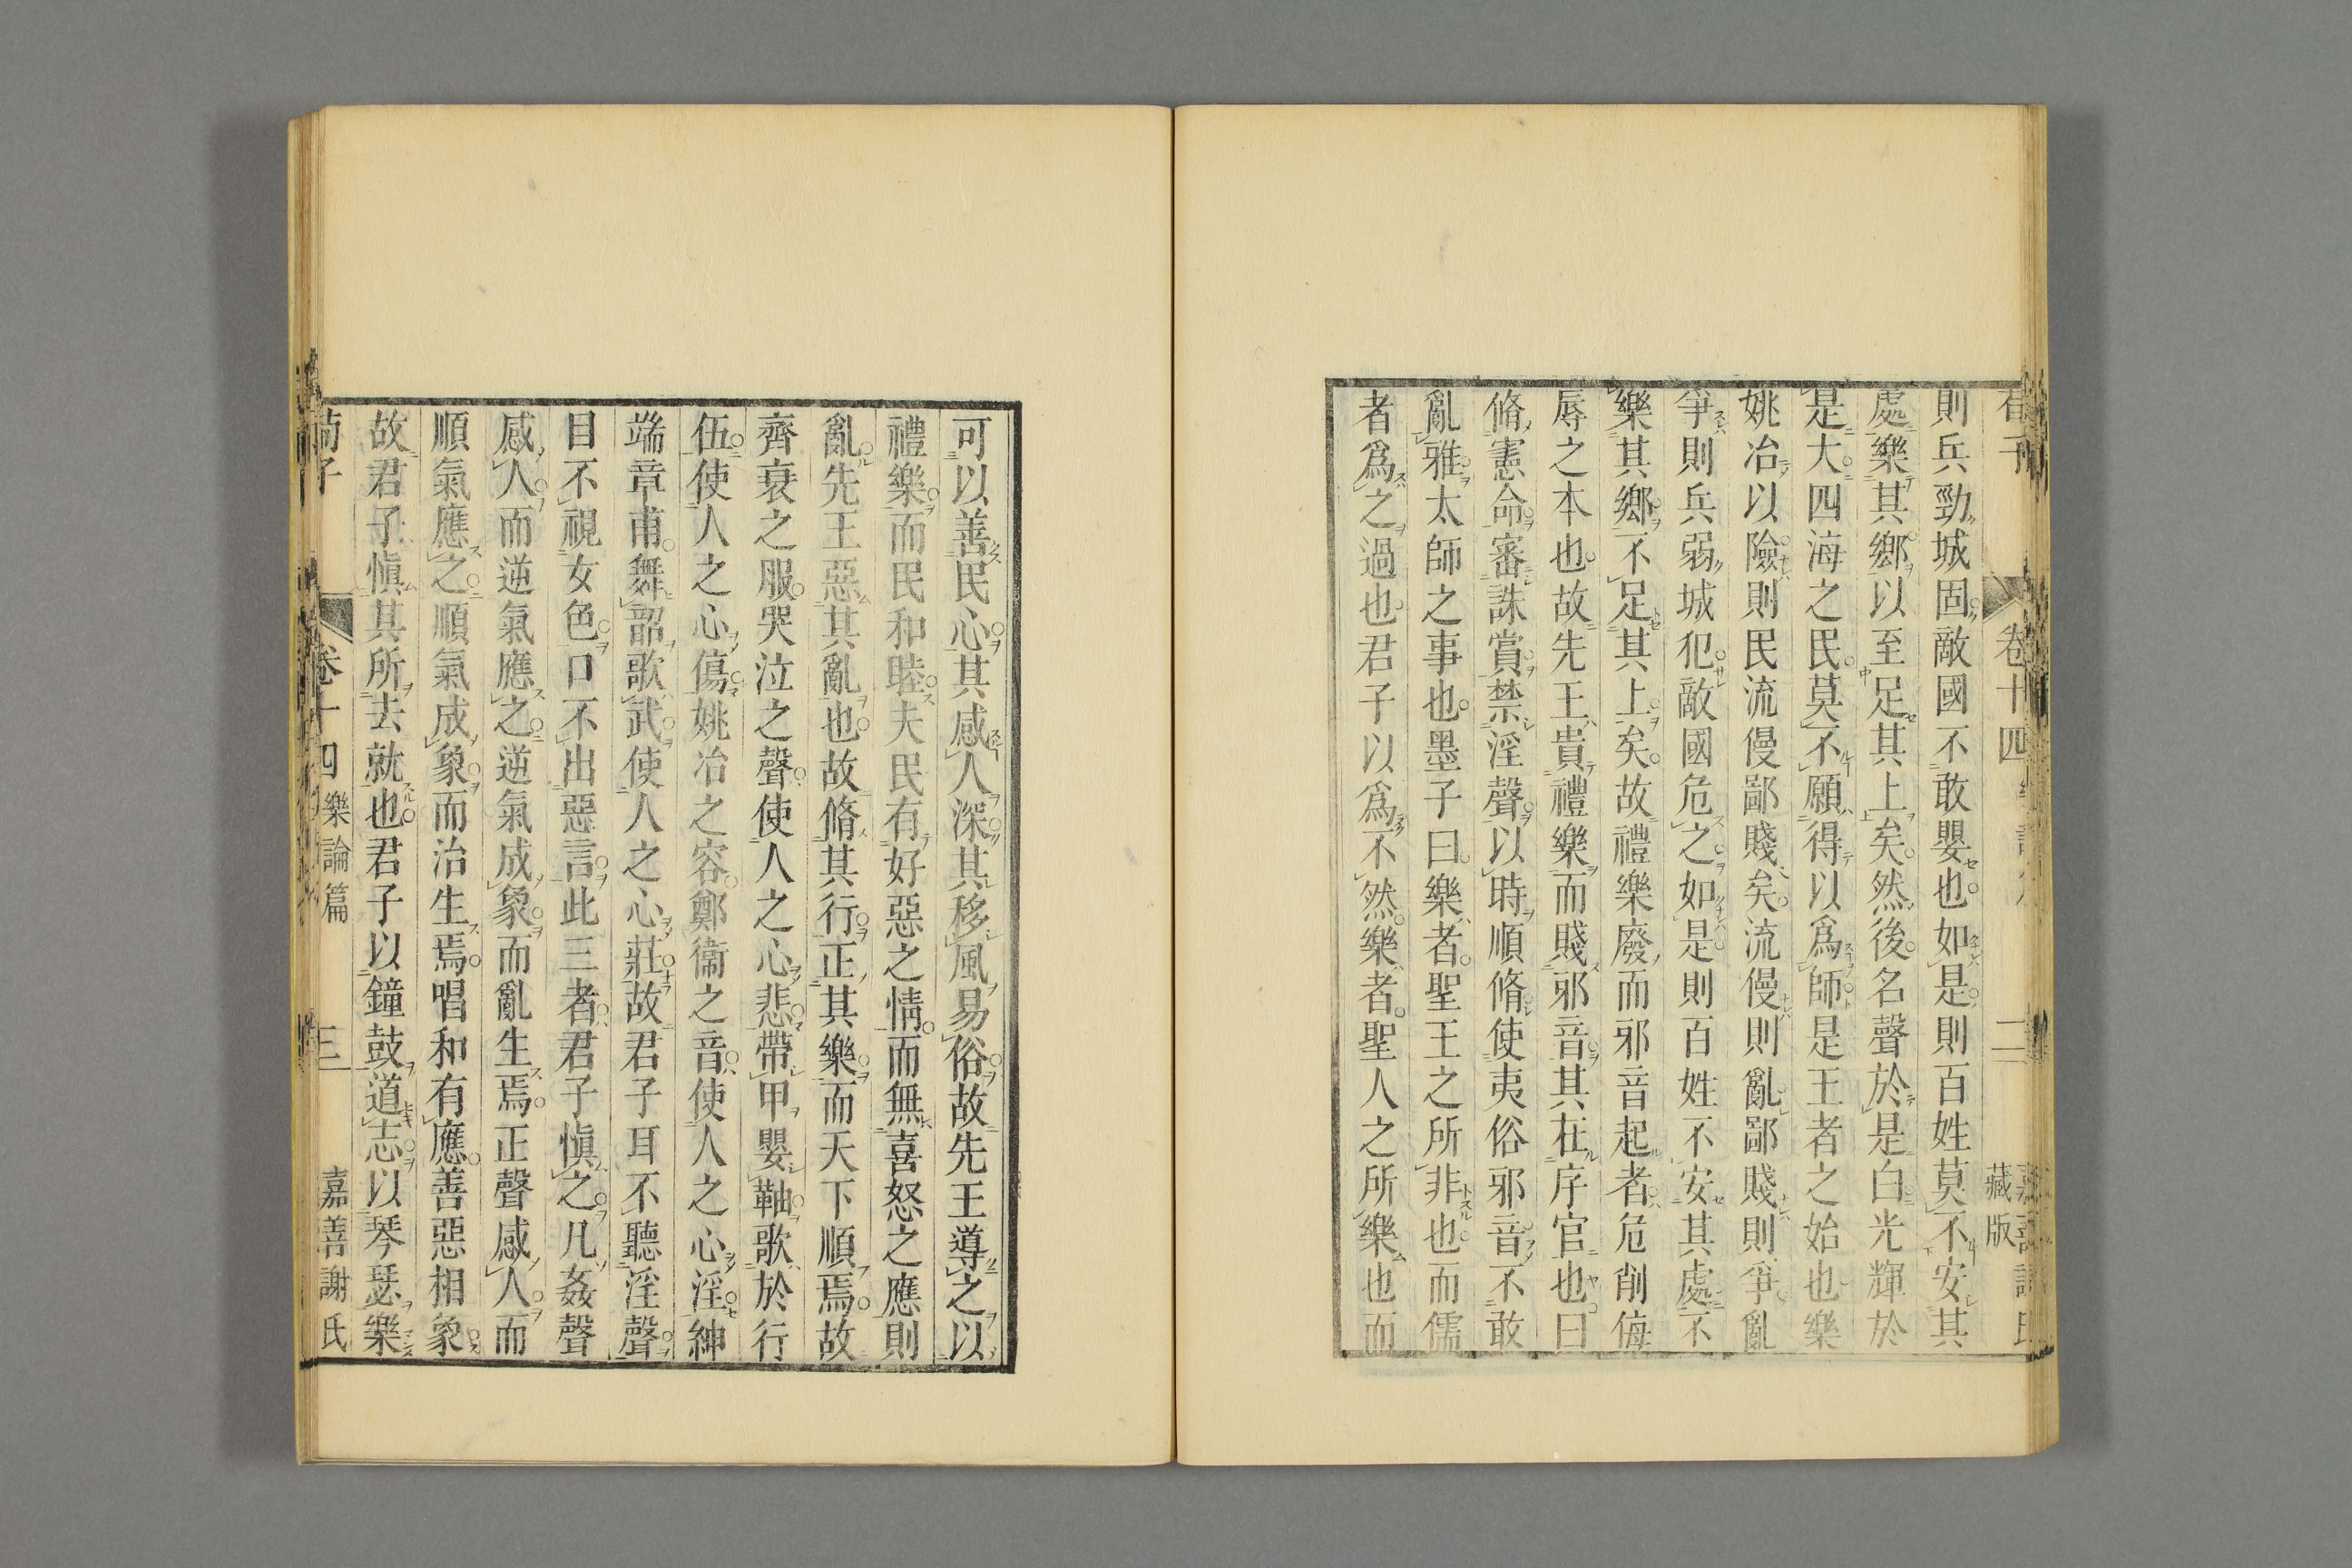 荀子 卷十四 二 藏版
則兵勁城固敵國不敢嬰也如是則百姓莫不安其
處樂其鄉以至足其上矣然後名聲於是白光輝於
是大四海之民莫不願得以爲師是王者之始也樂
姚冶以險則民流僈鄙賤矣流僈則亂鄙賤則爭亂
爭則兵弱城犯敵國危之如是則百姓不安其處不
樂其鄉不足其上矣故禮樂廢而邪音起者危削侮
辱之本也故先王貴禮樂而賤邪音其在序官也曰
脩憲命審誅賞禁淫聲以時順脩使夷俗邪音不敢
亂雅太師之事也墨子曰樂者聖王之所非也而儒
者爲之過也君子以爲不然樂者聖人之所樂也而
可以善民心其感人深其移風易俗故先王導之以
禮樂而民和睦夫民有好惡之情而無喜怒之應則
亂先王惡其亂也故脩其行正其樂而天下順焉故
齊衰之服哭泣之聲使人之心悲帶甲嬰䩜歌於行
伍使人之心傷姚冶之容鄭衞之音使人之心淫紳
端章甫舞韶歌武使人之心莊故君子耳不聽淫聲
目不視女色口不出惡言此三者君子愼之凡姦聲
感人而逆氣應之逆氣成象而亂生焉正聲感人而
順氣應之順氣成象而治生焉唱和有應善惡相象
故君子愼其所去就也君子以鐘鼓道志以琴瑟樂
荀子 卷十四 樂論篇 三 嘉善謝氏